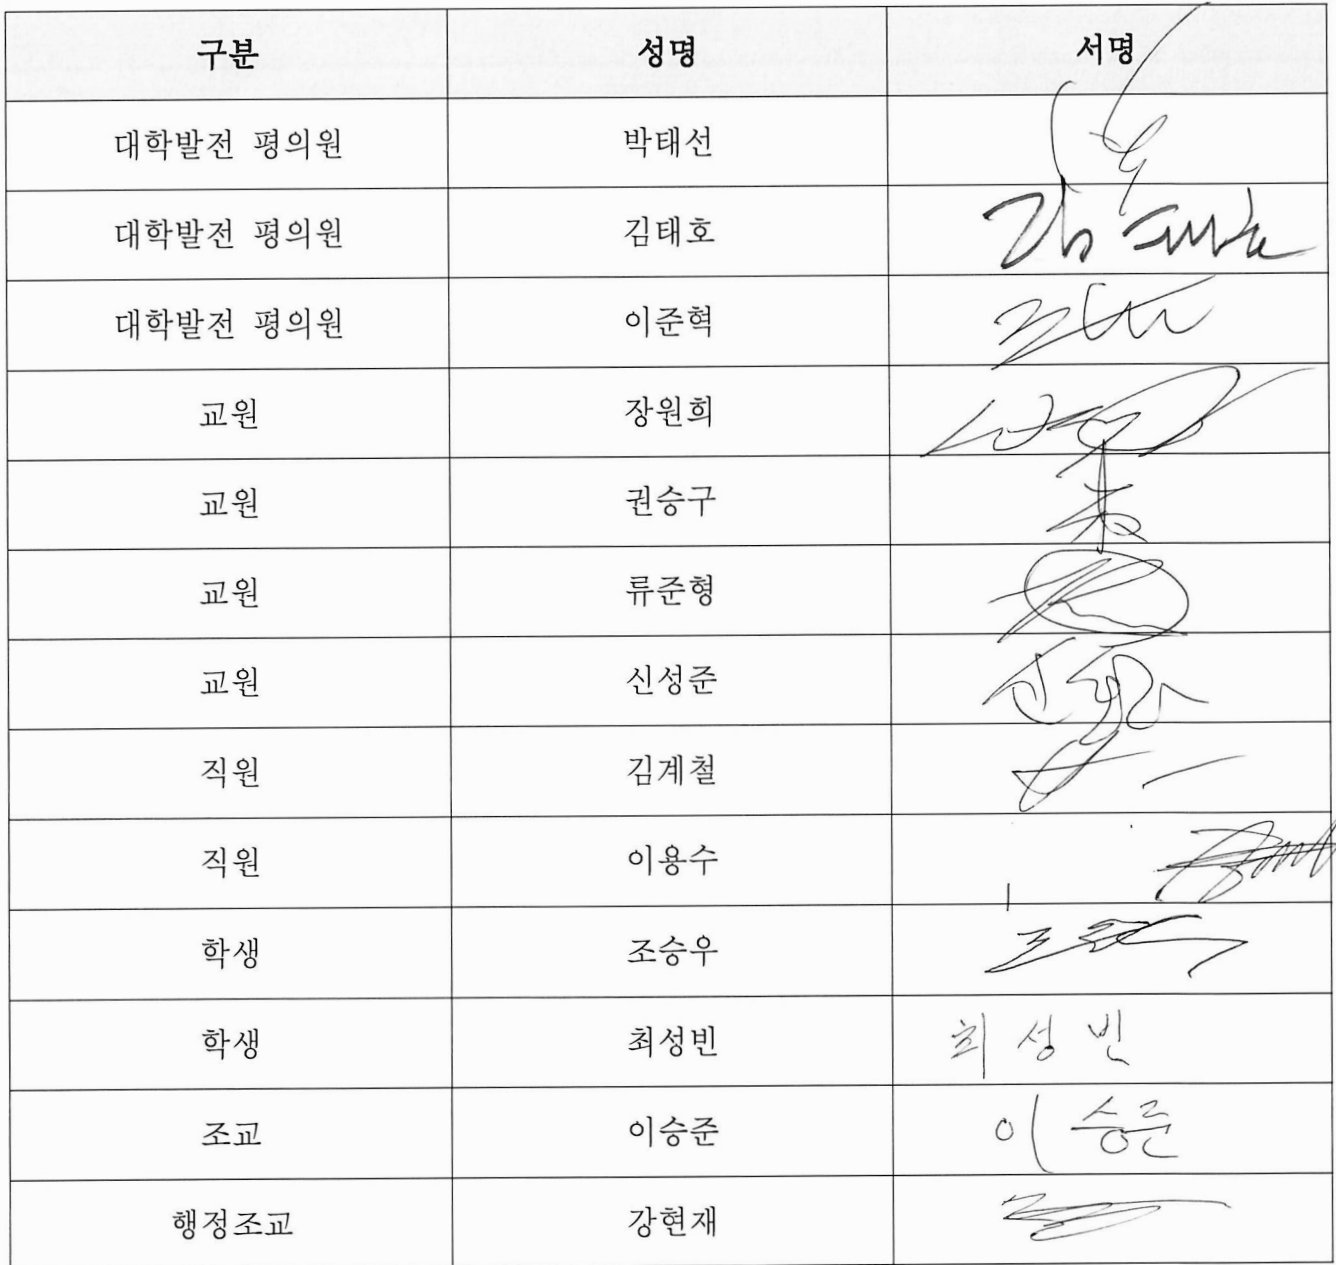 구분 성명 서명
대학발전 평의원 박태선
대학발전 평의원 김태호
대학발전 평의원 이준혁
교원 장원희
교원 권승구
교원 류준형
교원 신성준
직원 김계철
직원 이용수
학생 조승우
학생 최성빈 최성빈
조교 이승준 이승준
행정조교 강현재